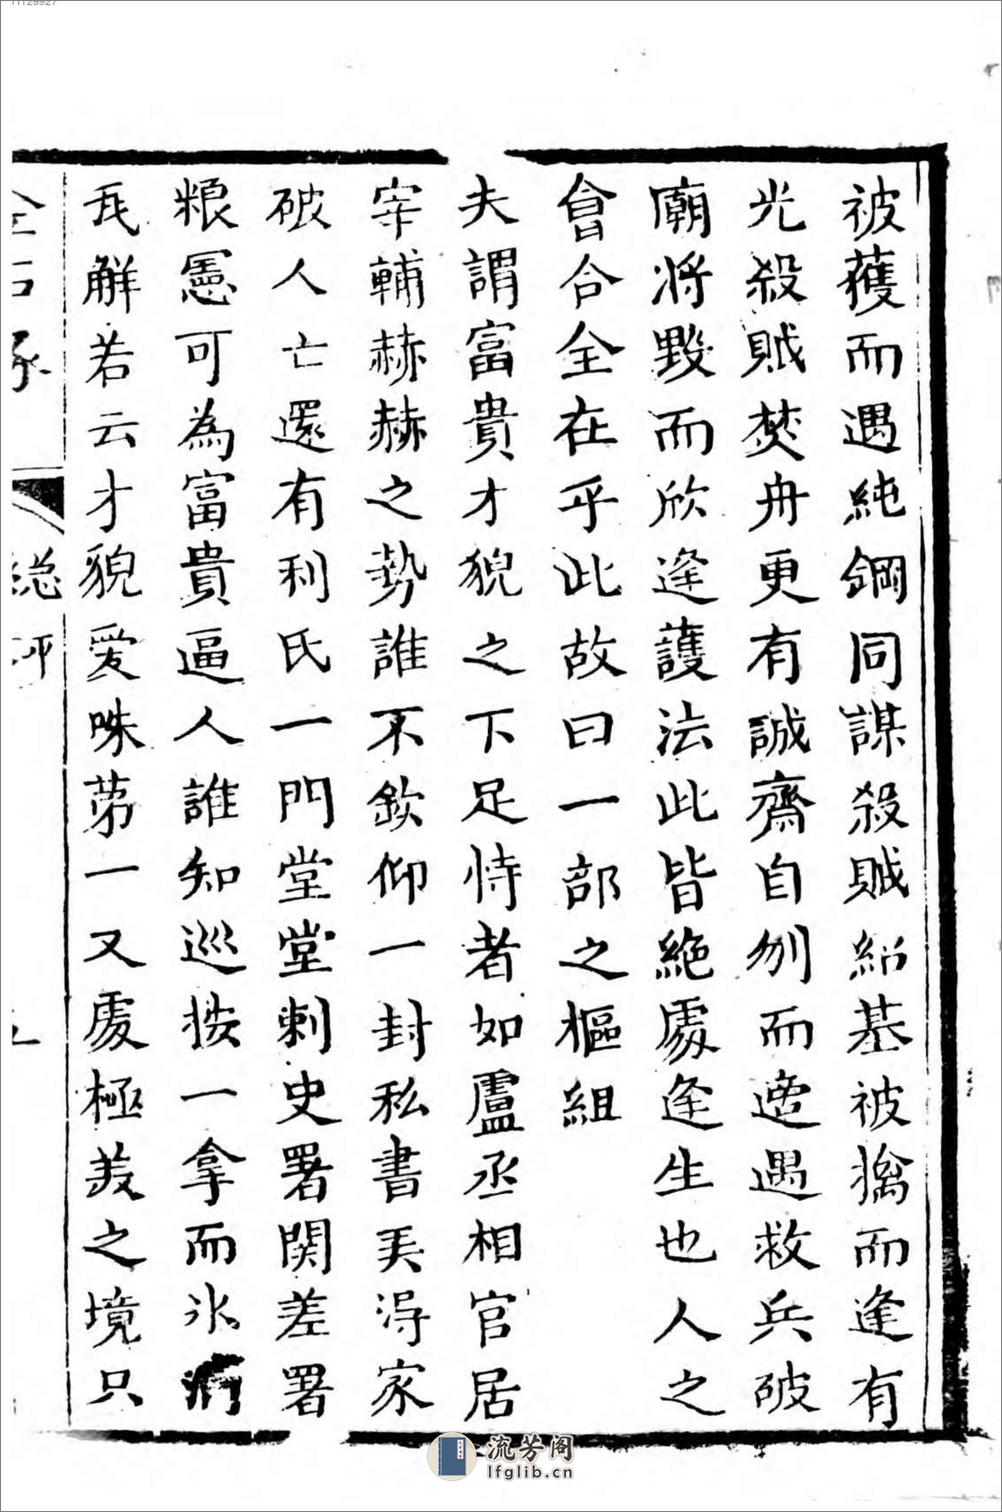 11129927
被獲而遇純鋼同謀殺賊紹基被擒而逢有
光殺賊焚舟更有誠齋自刎而適遇救兵破
廟將毀而欣逢護法此皆絶處逢生也人之
會合全在乎此故曰一部之樞組
夫謂富貴才貌之下足恃者如盧丞相官居
宰輔赫赫之勢誰不欽仰一封私書弄淂家
破人亡還有利氏一門堂堂刺史署関差署
粮憲可為富貴逼人誰知巡按一拿而氷消
瓦解若云才貌愛咮苐一又處極美之境只
全石承
総評
流芳阁
lfglib.cn